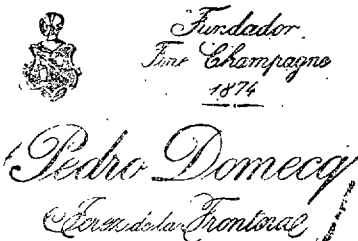 Fundador
Fine Champagne
1874
Pedro Domecq
Jerez de la Frontera